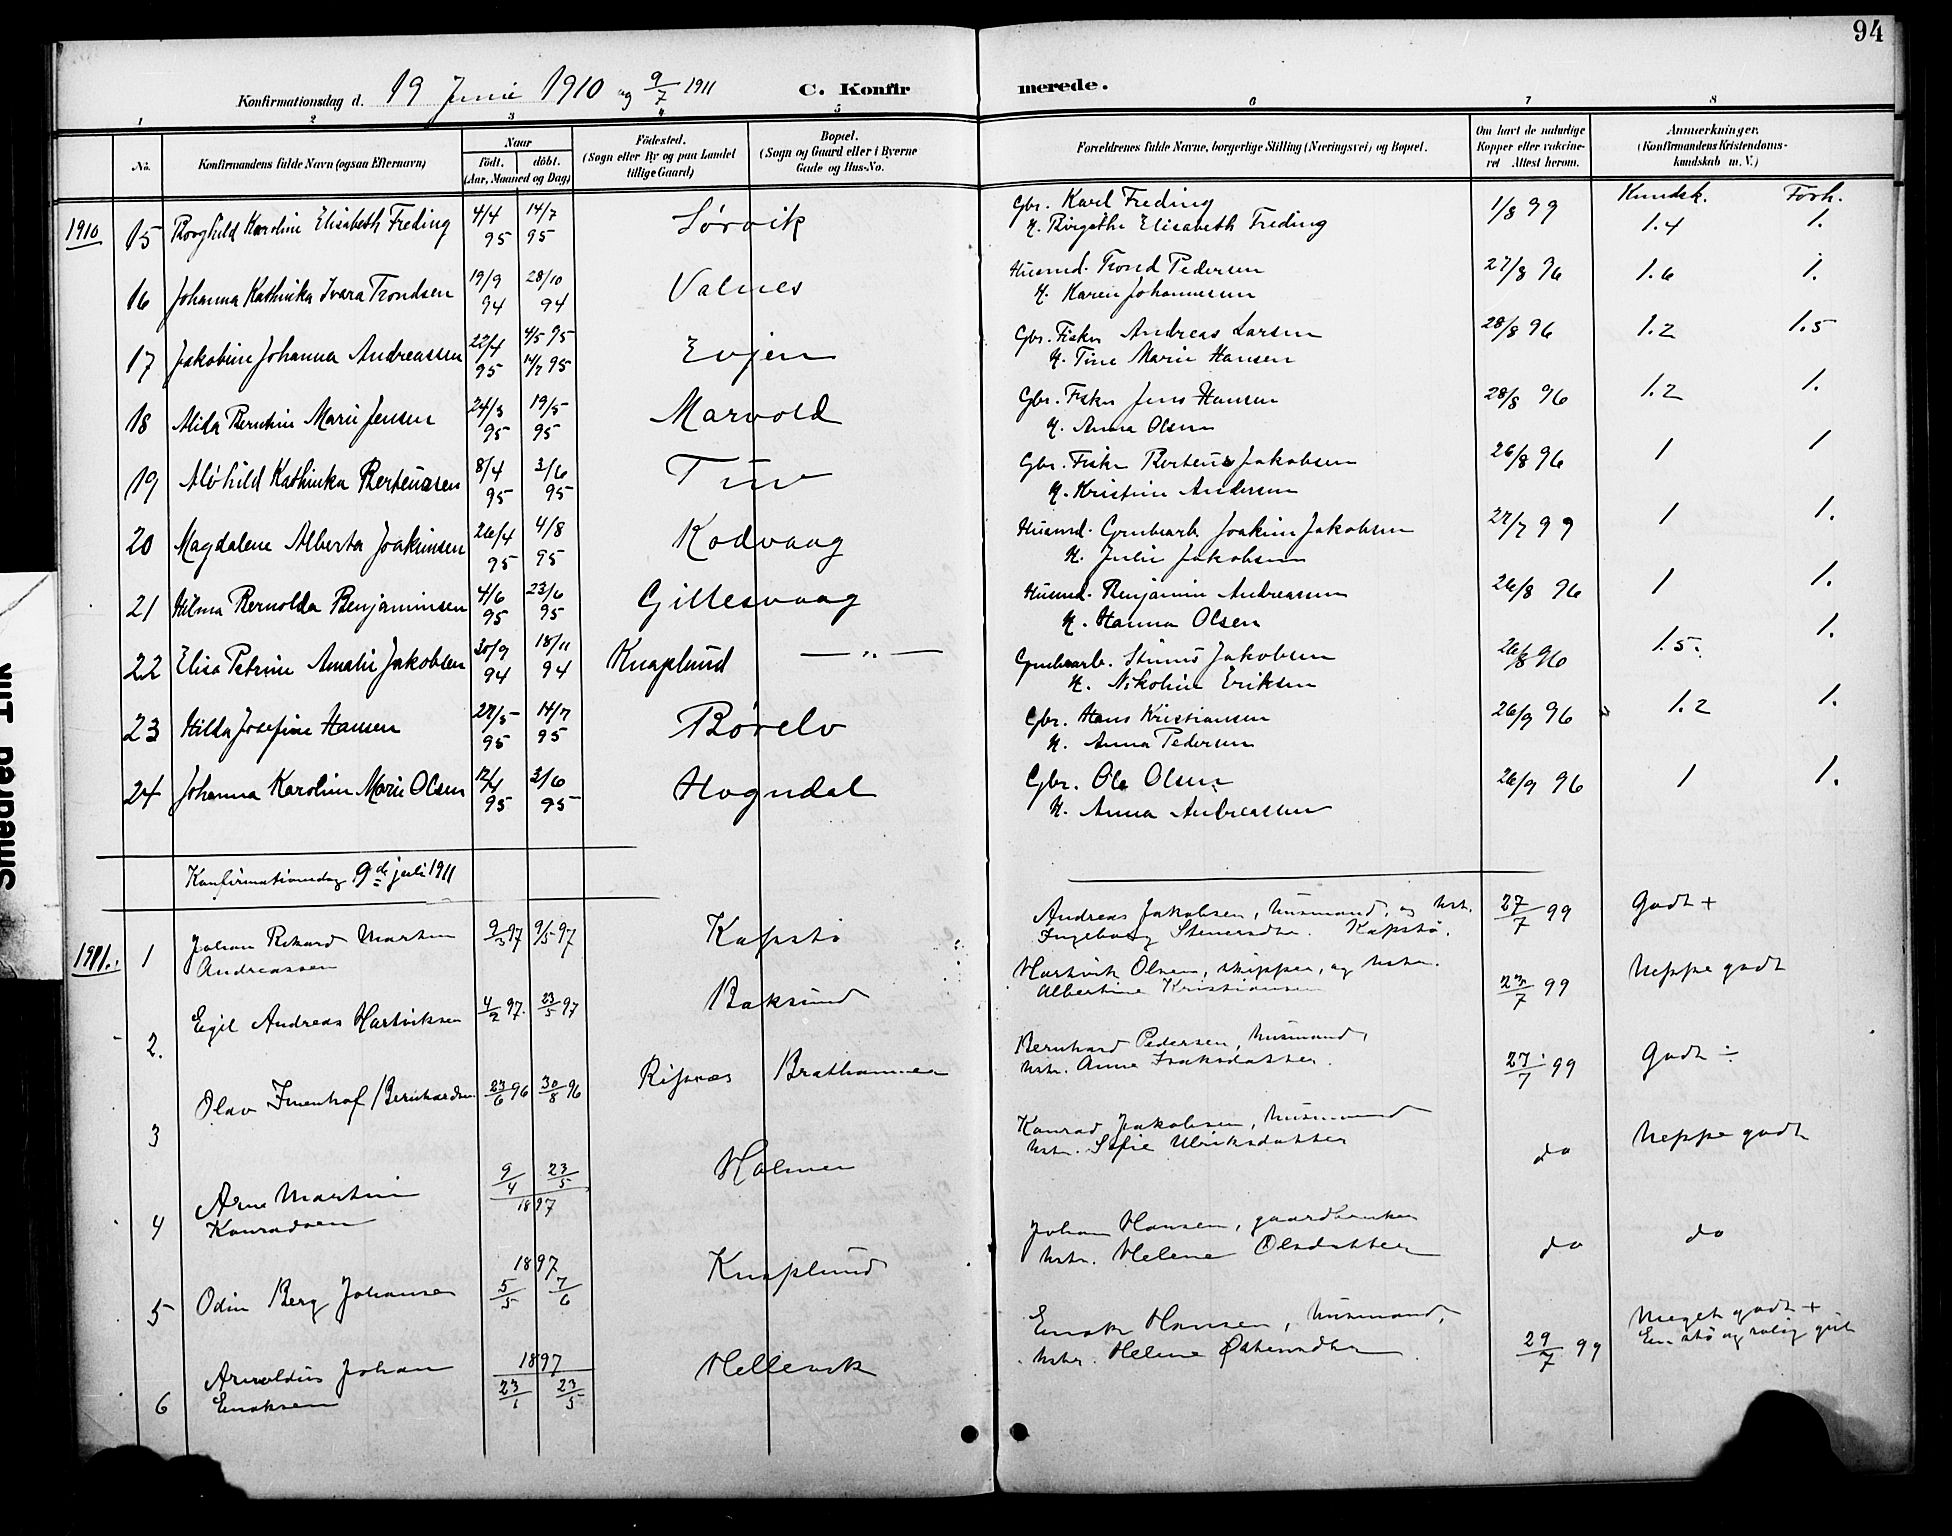 94
Konfirmationsdag d. 19 Juni 1910 og 9/7 1911 C. Konfirmerede.
1 2 3 4 5 6 7 8
No. Konfirmandens fulde Navn (ogsaa Efternavn) Naar födt. döbt. (Aar, Maaned og Dag) Födested. (Sogn eller By og paa Landet tillige Gaard) Bopæl. (Sogn og Gaard eller i Byerne Gade og Hus-No. Forældrenes fulde Navne, borgerlige Stilling (Næringsvei) og Bopæl. Om havt de naturlige Kopper eller vaccineret Attest herom. Anmærkninger, (Konfirmandens Kristendomskundskab m. V.)
Kundsk. Forh.
1910 15 Borghild Karoline Elisabeth Freding 4/4 95 14/7 95 Sørvik Gbr. Karl Freding 1/8 99 1.4 1.
H. Birgethe Elisabeth Freding
16 Johanna Kathinka Ivara Trondsen 19/9 94 28/10 94 Valnes Husmd. Trond Pedersen 27/8 96 1.6 1.
H. Karen Johannesen
17 Jakobine Johanna Andreassen 22/4 95 4/5 95 14/7 95 Evjen Gbr. Fisker Andreas Larsen 28/8 96 1.2 1.5
H. Tine Marie Hansen
18 Alida Berntine Marie Jensen 24/3 95 19/5 95 Marvold Gbr. Fisker Jens Hansen 28/8 96 1.2 1.
H. Anna Olsen
19 Alfhild Kathinka Berteussen 8/4 95 3/6 95 Tuv Gbr. Fisker Berteus Jakobsen 26/8 96 1 1
H. Kristine Andersen
20 Magdalene Alberta Joakimsen 26/4 95 4/8 95 Kodvaag Husmd. Grubearb. Joakim Jakobsen 27/7 99 1 1.
H. Julie Jakobsen
21 Hilma Bernolda Benjaminsen 4/6 95 23/6 95 Gillesvaag Husmd. Benjamin Andreassen 26/8 96 1 1.
H. Hanna Olsen
22 Elisa Petrine Amalie Jakobsen 30/9 94 18/11 94 Knaplund — „ — Grubearb. Jakobsen 26/8 96 1.5. 1.
H. Nikoline Eriksen
23 Hilda Josefine Hansen 27/5 95 14/7 95 Børelv Gbr. Hans Kristiansen 26/9 96 1.2 1.
H. Anna Pedersen
24 Johanna Karoline Marie Olsen 12/4 95 3/6 95 Hogndal Gbr. Ole Olsen 26/9 96 1 1.
H. Anna Andreassen
Konfirmationsdag 9de juli 1911
1911. 1 Johan Rikard Martin 9/3 97 9/5 97 Kapstø Andreas Jakobsen, husmand, og hst. 27/7 99 Godt +
Andreassen Ingeborg Steensdtr. Kapstø.
2. Egil Andreas Hartviksen 4/2 97. 23/5 97 Baksund Hartvik Olsen, skipper, og hstr. 23/7 99 Neppe godt
Albertine Kristiansen
3 Olav Bernhardsen 23/6 96 30/8 96 Risnæs Brathammer Bernhard Pedersen, husmand, 27/7 99 Godt ÷
hstr. Anne Isaksdatter.
4 Arne Martin 9/4 23/5 1897 Holmen Konrad Jakobsen, husmand do Neppe godt
Konradsen hstr. Sofie Ulriksdatter
5 Odin Berg Johansen 1897 5/5 7/6 Knaplund Johan Hansen, gaardbruker do do
hstr. Helene Olsdatter
6 Arnoldus Johan 1897 23/1 23/5 Hellevik Enok Hansen, husmand, 29/7 99 Meget godt +
Enoksen hstr. Helene En stø og rolig gut